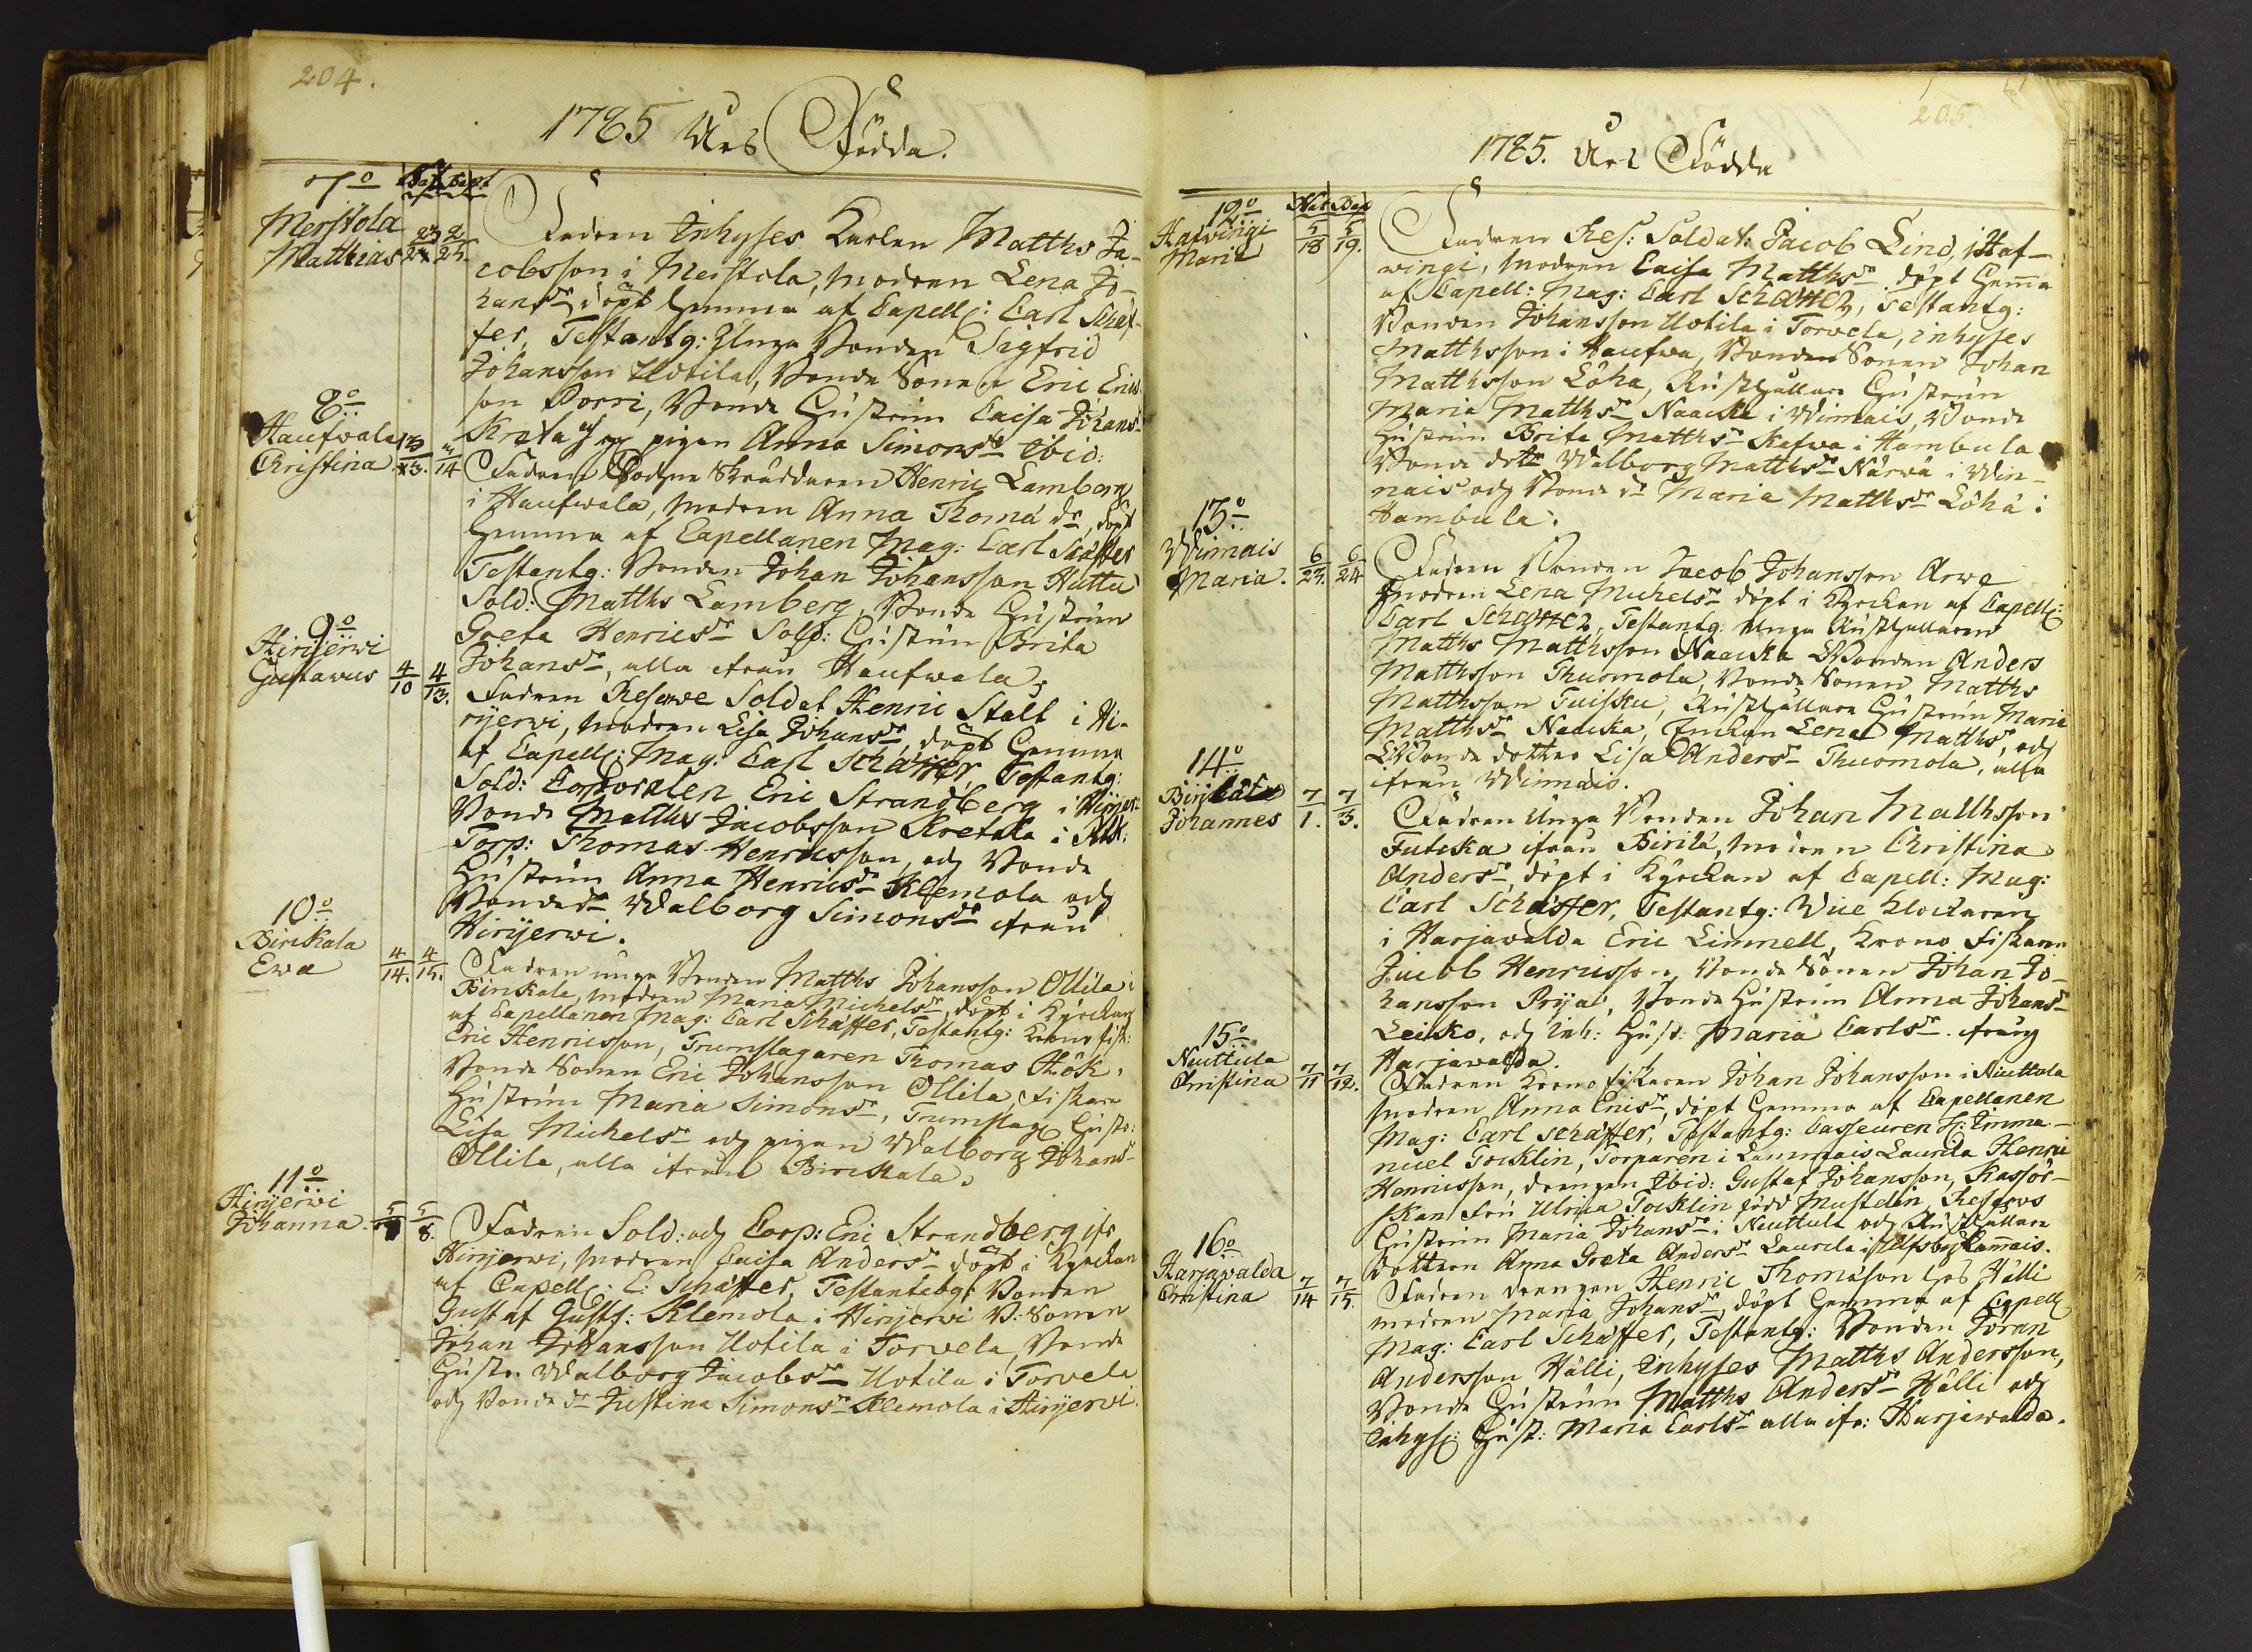 204.
1785 Års Födda.
7o Nat Bapt
Merstola 23/2 2/25.
Matthias
Fadren Inhyses Karlen Matths Ja-
cobsson i Meistola, modren Lena Jo-
hansdr döpt hemma af Capell: Carl Schæf-
fer, Testantg: Unga Bonden Sigfrid
Johansson Uotila, Bonde Sonen Eric Erics
son Porri, Bonde Hustrun Caisa Johansdr
Krata och pigan Anna Simonsdr Ibid:
8o
Haufwala
Christina 3/13. 3/14
Fadren Sockne Skräddaren Henric Lamberg
i Haufwala, modren Anna Thomædr, döpt
hemma af Capellanen Mag: Carl Schæffer
Testantg: Bonden Johan Johansson Huttu
Sold: Matths Lamberg, Bonde Hustrun
Greta Henricsdr Sold: Hustrun Brita
Johansdr, alla ifrån Haufwala.
9o
Hirijerwi
Gustavus 4/10 4/13.
Fadren Reserve Soldat Henric Stolt i Hi-
rijerwi, modren Lisa Johansdr, döpt hemma
af Capell: Mag. Carl Schæffer, Testantg:
Sold: Corporalen Eric Strandberg i
Bonde Matths Jacobsson Kretala i
Torp: Thomas Henricsson, och Bonde
Hustrun Anna Henricsdr Klemola och
Bondedr Walborg Simonsdr ifrån
Hirijerwi.
10o
Birikala
Ewa 4/14. 4/15.
Fadren unga Bonden Matths Johansson Ollila i
Birikala, modren Maria Michelsdr, döpt i Kyrckan
af Capellanen Mag: Carl Schæffer, Testantg: Krono fisk:
Eric Henricsson, Trumslagaren Thomas Hök,
Bonde Sonen Eric Johansson Ollila, fiskare
Hustrun Maria Simonsdr, Trumslag: Hustr:
Lisa Michelsdr och pigan Walborg Johansdr
Ollila, alla ifrån Birickala.
11o
Hirijerwi
Johanna. 5/7 5/8.
Fadren Sold: och Corp: Eric Strandberg ifr
Hirijerwi, modren Caisa Andersdr döpt i Kyrckan
af Capell: C: Schæffer, Testantebg: Bonden
Gustaf Gustfs: Klemola i Hirijerwi B: Sonen
Johan Johansson Uotila i Torvela, Bonde
Hustr. Walborg Jacobsdr Uotila i Torvela
och Bonde dr Justina Simonsdr Klemola i Hirijerwi.
205.
1785. Års Födda
12o Nat Bap
Hafwingi
Marit 5/18 5/19.
Fadren Res: Soldat: Jacob Lind, i Haf-
wingi, modren Caisa Matthsdr döpt hemma
af Capell: Mag: Carl Schæffer, Testantg:
Bonden Johansson Uotila i Torvela, inhyses
Matthsson i Haufwa, Bonden Sonen Johan
Matthsson Löhä, Rusthållare Hustrun
Maria Matthsdr Naacka i Winnais, Bonde
Hustrun Brita Matthsdr Kafwa i Hambula
Bonde dotter Walborg Matthsdr Närwä i Win-
nais och Bonde dr Maria Matthsdr Löhä i
Hambula.
13o
Winnais
Maria. 6/23. 6/24
Fadren Bonden Jacob Johansson Arwe
modren Lena Michelsdr döpt i Kyrckan af Capell:
Carl Schæffer, Testantg: Unga Rusthållaren
Matths Matthsson Naacka Bonden Anders
Matthsson Thuomola, Bonde Sonen Matths
Matthsson Tuisku, Rusthållare Hustrun Maria
Matthsdr Naacka, Enckan Lena Matthsdr, och
Bonde dotter Lisa Andersdr Thuomola, alla
ifrån Winnais.
14o
Birilä
Johannes 7/1. 7/3.
Fadren Unga Bonden Johan Matthsson
Futcka ifrån Birilä, modren Christina
Andersdr, döpt i Kyrckan af Capell: Mag:
Carl Schæffer, Testantg: Wice Klockaren
i Harjawalda Eric Limnell, Krono Fiskaren
Jacob Henricsson, Bonde Sonen Johan Jo-
hansson Prija, Bonde Hustrun Anna Johansdr
Leicko, och Inh: Hust: Maria Carlsdr ifrån
Harjawalda.
15o
Niuttula
Christina 7/11 7/12.
Fadren Krono Fiskaren Johan Johansson i Niuttula
modren Anna Ericsdr, döpt hemma af Capellanen
Mag: Carl Schæffer, Testantg: Casseuren H: Imma-
nuel Tocklin, Torparen i Lammais Laurila Henric
Henricsson, drengen Ibid: Gustaf Johansson, Kassör-
skan Fru Ulrica Tocklin född Mustelin, Reserws
Hustrun Maria Johansdr i Niuttula och Rusthållare
Dottren Anna Greta Andersdr Laurila i Ulfsby Lammais.
16o
Harjawalda
Christina 7/14 7/15.
Fadren drengen Henric Thomasson hos Hälli
modren Maria Johansdr, döpt hemma af Capell
Mag: Carl Schæffer, Testantg: Bonden Jöran
Andersson Hälli, Inhyses Matths Andersson,
Bonde Hustrun Matths Andersdr Hälli och
Inhyses: Hust: Maria Carlsdr alla ifr: Harjawalda.